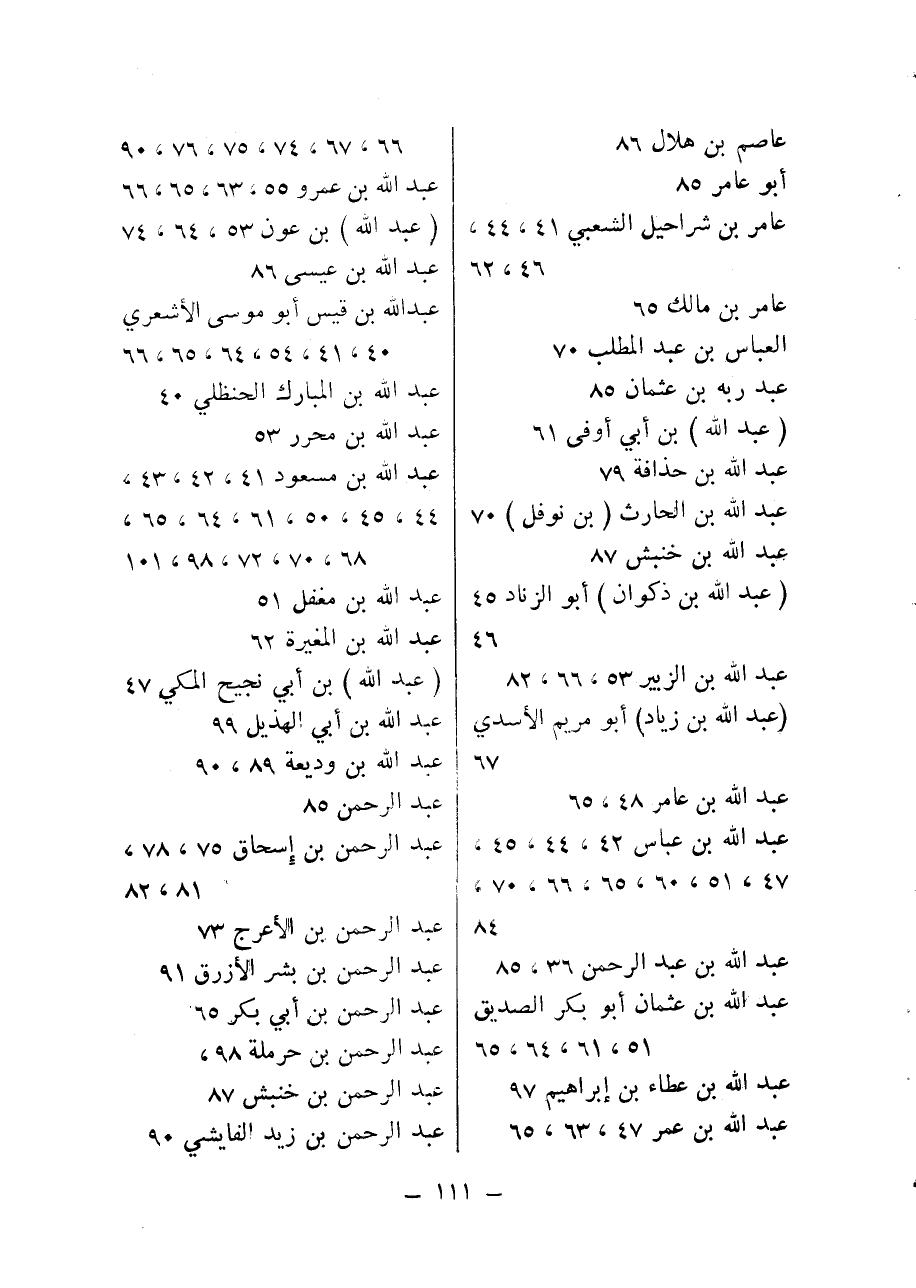 عاصم بن هلال ٨٦
أبو عامر ٨٥
عامر بن شراحيل الشعبي ٤١ ، ٤٤ ،
٤٦ ، ٦٢
عامر بن مالك ٦٥
العباس بن عبد المطلب ٧٠
عبد ربه بن عثمان ٨٥
( عبد الله ) بن أبي أوفى ٦١
عبد الله بن حذافة ٧٩
عبد الله بن الحارث ( بن نوفل ) ٧٠
عبد الله بن خنبش ٨٧
( عبد الله بن ذكوان ) أبو الزناد ٤٥
٤٦
عبد الله بن الزبير ٥٣ ، ٦٦ ، ٨٢
(عبد الله بن زياد) أبو مريم الأسدي
٦٧
عبد الله بن عامر ٤٨ ، ٦٥
عبد الله بن عباس ٤٢ ، ٤٤ ، ٤٥ ،
٤٧ ، ٥١ ، ٦٠ ، ٦٥ ، ٦٦ ، ٧٠ ،
٨٤
عبد الله بن عبد الرحمن ٣٦ ، ٨٥
عبد الله بن عثمان أبو بكر الصديق
٥١ ، ٦١ ، ٦٤ ، ٦٥
عبد الله بن عطاء بن إبراهيم ٩٧
عبد الله بن عمر ٤٧ ، ٦٣ ، ٦٥
٦٦ ، ٦٧ ، ٧٤ ، ٧٥ ، ٧٦ ، ٩٠
عبد الله بن عمرو ٥٥ ، ٦٣ ، ٦٥ ، ٦٦
( عبد الله ) بن عون ٥٣ ، ٦٤ ، ٧٤
عبد الله بن عيسى ٨٦
عبدالله بن قيس أبو موسى الأشعري
٤٠ ، ٤١ ، ٥٤ ، ٦٤ ، ٦٥ ، ٦٦
عبد الله بن المبارك الحنظلي ٤٠
عبد الله بن محرر ٥٣
عبد الله بن مسعود ٤١ ، ٤٢ ، ٤٣ ،
٤٤ ، ٤٥ ، ٥٠ ، ٦١ ، ٦٤ ، ٦٥ ،
٦٨ ، ٧٠ ، ٧٢ ، ٩٨ ، ١٠١
عبد الله بن مغفل ٥١
عبد الله بن المغيرة ٦٢
( عبد الله ) بن أبي نجيح المكي ٤٧
عبد الله بن أبي الهذيل ٩٩
عبد الله بن وديعة ٨٩ ، ٩٠
عبد الرحمن ٨٥
عبد الرحمن بن إسحاق ٧٥ ، ٧٨ ،
٨١ ، ٨٢
عبد الرحمن بن الأعرج ٧٣
عبد الرحمن بن بشر الأزرق ٩١
عبد الرحمن بن أبي بكر ٦٥
عبد الرحمن بن حرملة ٩٨ ،
عبد الرحمن بن خنبش ٨٧
عبد الرحمن بن زيد الفايشي ٩٠
– ١١١ –